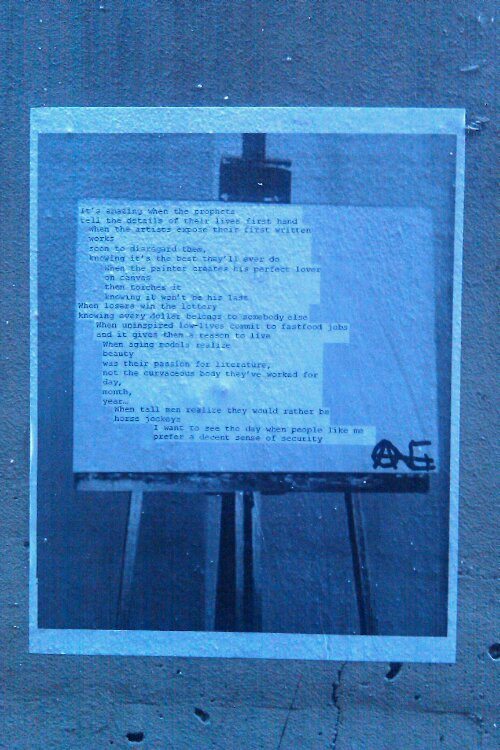 It's amazing when the prophets
tell the details of their lives first hand
When the artists expose their first written
works
soon to disregard them,
knowing it's the best they'll ever do
When the painter creates his perfect lover
on canvas
then torches it
knowing it won't be his last
When losers win the lottery
knowing every dollar belongs to somebody else
When uninspired low-lives commit to fastfood jobs
and it gives them a reason to live
When aging models realize
beauty
was their passion for literature,
not the curvaceous body they've worked for
day,
month,
year…
When tall men realize they would rather be
horse jockeys
I want to see the day when people like me
prefer a decent sense of security